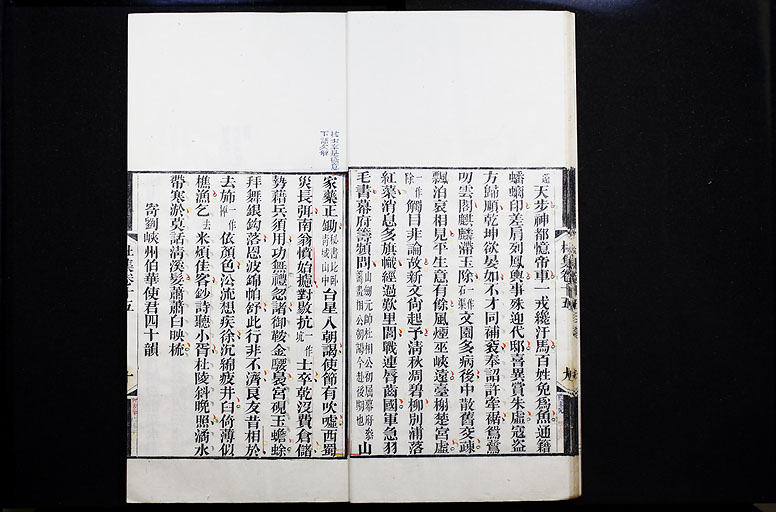 遠天步神都憶帝車一戎纔汗馬百姓免為魚通籍
蟠螭印差肩列鳳輿事殊迎代邸喜異賞朱虛寇盜
方歸順乾坤欲晏如不才同補袞奉詔許牽裾鴛鷺
叨雲閣麒麟滯玉除文園多病後中散舊交疎
飄泊哀相見平生意有餘風煙巫峽遠臺榭楚宮虛
一作除觸目非論故新文尚起予清秋凋碧柳別浦落
紅蕖消息多旗幟經過歎里閭戰連唇齒國軍急羽
毛書幕府籌頻問山劒元帥杜相公初屈幕府參籌畫相公朝謁今赴後期也山
家藥正鋤秘書比臥青城山中台星入朝謁使節有吹噓西蜀
災長弭南翁憤始攄對敭抗一作坑士卒乾沒費倉儲
勢藉兵須用功無禮忽諸御鞍金騕褭宮硯玉蟾蜍
拜舞銀鉤落恩波錦帕舒此行非不濟良友昔相於
去旆一作依顏色沿流想疾徐沉綿疲井臼倚薄似
樵漁乞去米煩佳客鈔詩聽小胥杜陵斜晚照潏水
帶寒淤莫話清溪髮蕭蕭白映梳
寄劉峽州伯華使君四十韻
杜集卷十五